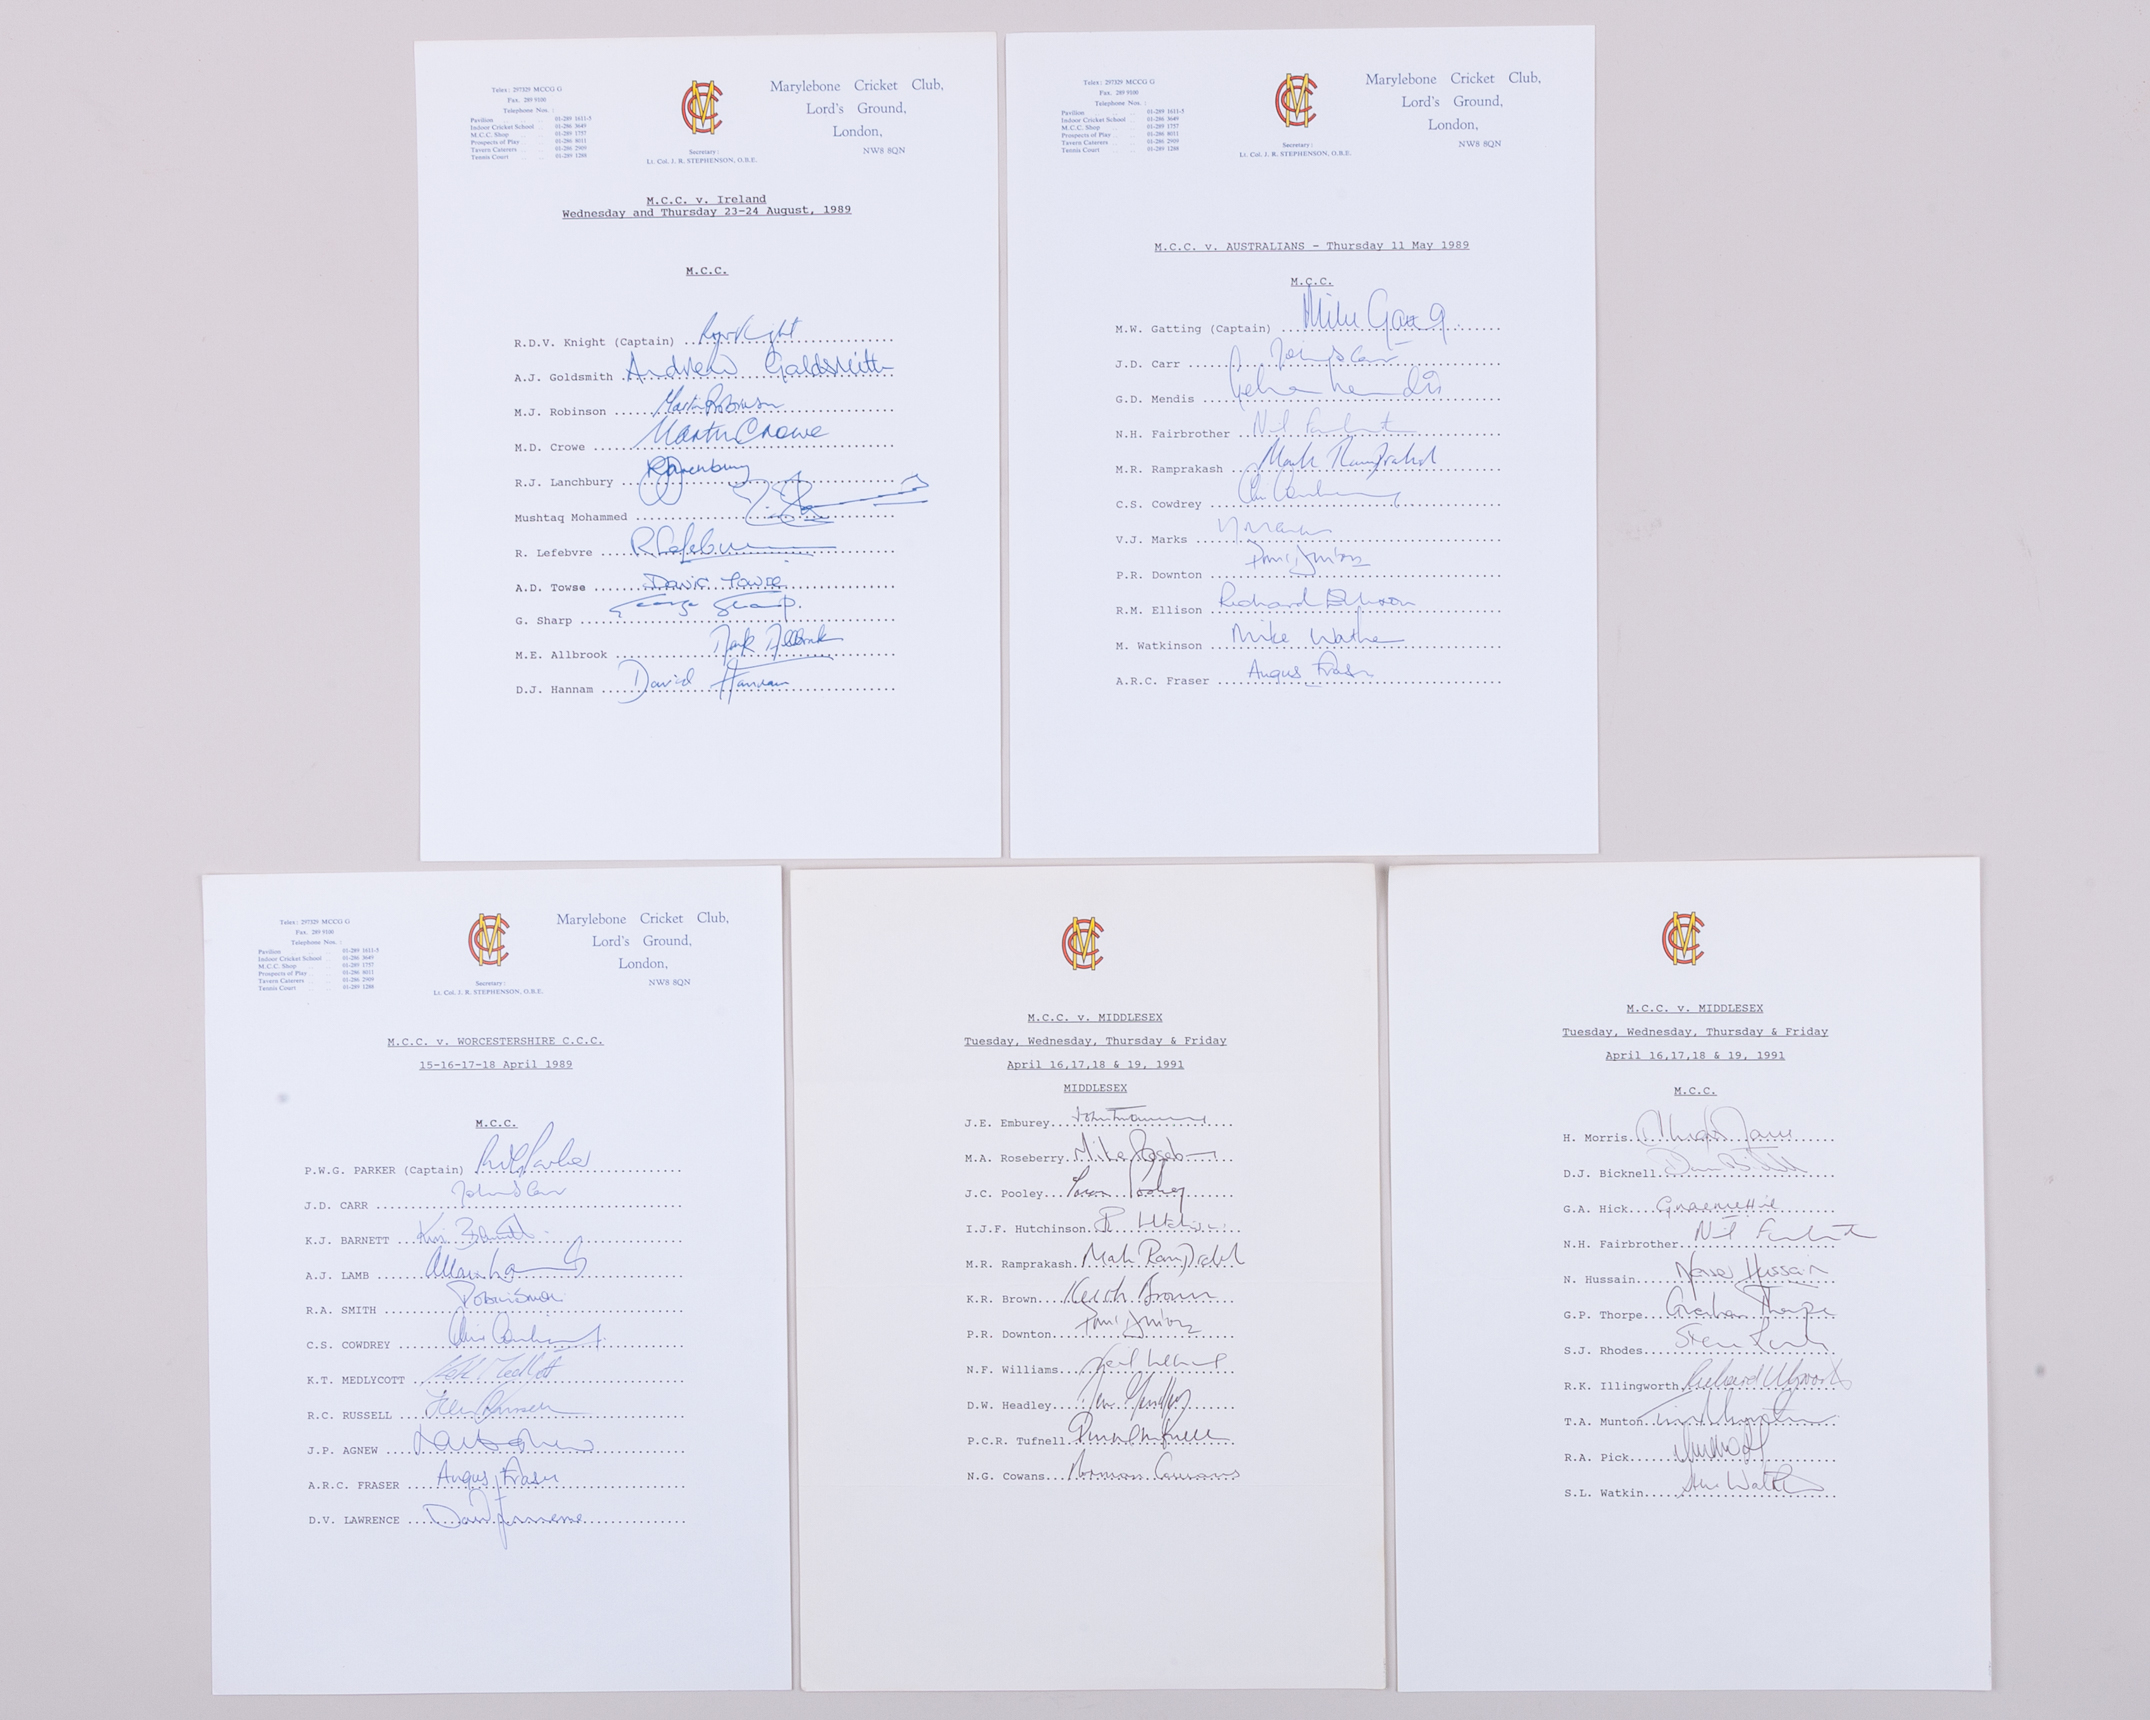 Telex: 297329 MCCG G
Fax. 289 9100
Telephone Nos. :
Pavilion .. .. 01-289 1611-5
Indoor Cricket School .. 01-286 3649
M.C.C. Shop .. .. 01-289 1757
Prospects of Play .. .. 01-286 8011
Tavern Caterers .. .. 01-286 2909
Tennis Court .. .. 01-289 1288
MCC
Secretary:
Lt. Col. J. R. STEPHENSON, O.B.E.
Marylebone Cricket Club,
Lord's Ground,
London,
NW8 8QN
M.C.C. v. Ireland
Wednesday and Thursday 23-24 August, 1989
M.C.C.
R.D.V. Knight (Captain) Roger Knight
A.J. Goldsmith Andrew Goldsmith
M.J. Robinson Martin Robinson
M.D. Crowe Martin Crowe
R.J. Lanchbury RJLanchbury
Mushtaq Mohammed
R. Lefebvre R Lefebvre
A.D. Towse David Towse
G. Sharp George Sharp.
M.E. Allbrook Mark Allbrook
D.J. Hannam David Hannam
Telex: 297329 MCCG G
Fax. 289 9100
Telephone Nos. :
Pavilion .. .. 01-289 1611-5
Indoor Cricket School .. 01-286 3649
M.C.C. Shop .. .. 01-289 1757
Prospects of Play .. .. 01-286 8011
Tavern Caterers .. .. 01-286 2909
Tennis Court .. .. 01-289 1288
MCC
Secretary:
Lt. Col. J. R. STEPHENSON, O.B.E.
Marylebone Cricket Club,
Lord's Ground,
London,
NW8 8QN
M.C.C. v. AUSTRALIANS - Thursday 11 May 1989
M.C.C.
M.W. Gatting (Captain) Mike Gatting
J.D. Carr John D Carr
G.D. Mendis Gehan Mendis
N.H. Fairbrother Neil Fairbrother
M.R. Ramprakash Mark Ramprakash
C.S. Cowdrey Chris Cowdrey
V.J. Marks V Marks
P.R. Downton Paul Downton
R.M. Ellison Richard Ellison
M. Watkinson Mike Watkinson
A.R.C. Fraser Angus Fraser
Telex: 297329 MCCG G
Fax. 289 9100
Telephone Nos. :
Pavilion .. .. 01-289 1611-5
Indoor Cricket School .. 01-286 3649
M.C.C. Shop .. .. 01-289 1757
Prospects of Play .. .. 01-286 8011
Tavern Caterers .. .. 01-286 2909
Tennis Court .. .. 01-289 1288
MCC
Secretary:
Lt. Col. J. R. STEPHENSON, O.B.E.
Marylebone Cricket Club,
Lord's Ground,
London,
NW8 8QN
M.C.C. v. WORCESTERSHIRE C.C.C.
15-16-17-18 April 1989
M.C.C.
P.W.G. PARKER (Captain) Paul Parker
J.D. CARR John D Carr
K.J. BARNETT Kim Barnett
A.J. LAMB Allan Lamb
R.A. SMITH Robin Smith
C.S. COWDREY Chris Cowdrey
K.T. MEDLYCOTT Keith Medlycott
R.C. RUSSELL Jack Russell
J.P. AGNEW
A.R.C. FRASER Angus Fraser
D.V. LAWRENCE David Lawrence
MCC
M.C.C. v. MIDDLESEX
Tuesday, Wednesday, Thursday & Friday
April 16,17,18 & 19, 1991
MIDDLESEX
J.E. Emburey John Emburey
M.A. Roseberry Mike Roseberry
J.C. Pooley Jason Pooley
I.J.F. Hutchinson
M.R. Ramprakash Mark Ramprakash
K.R. Brown Keith Brown
P.R. Downton Paul Downton
N.F. Williams Neil Williams
D.W. Headley Dean Headley
P.C.R. Tufnell
N.G. Cowans Norman Cowans
MCC
M.C.C. v. MIDDLESEX
Tuesday, Wednesday, Thursday & Friday
April 16,17,18 & 19, 1991
M.C.C.
H. Morris
D.J. Bicknell Darren Bicknell
G.A. Hick Graeme Hick
N.H. Fairbrother Neil Fairbrother
N. Hussain Nasser Hussain
G.P. Thorpe Graham Thorpe
S.J. Rhodes Steve Rhodes
R.K. Illingworth Richard Illingworth
T.A. Munton Tim Munton
R.A. Pick
S.L. Watkin Steve Watkin